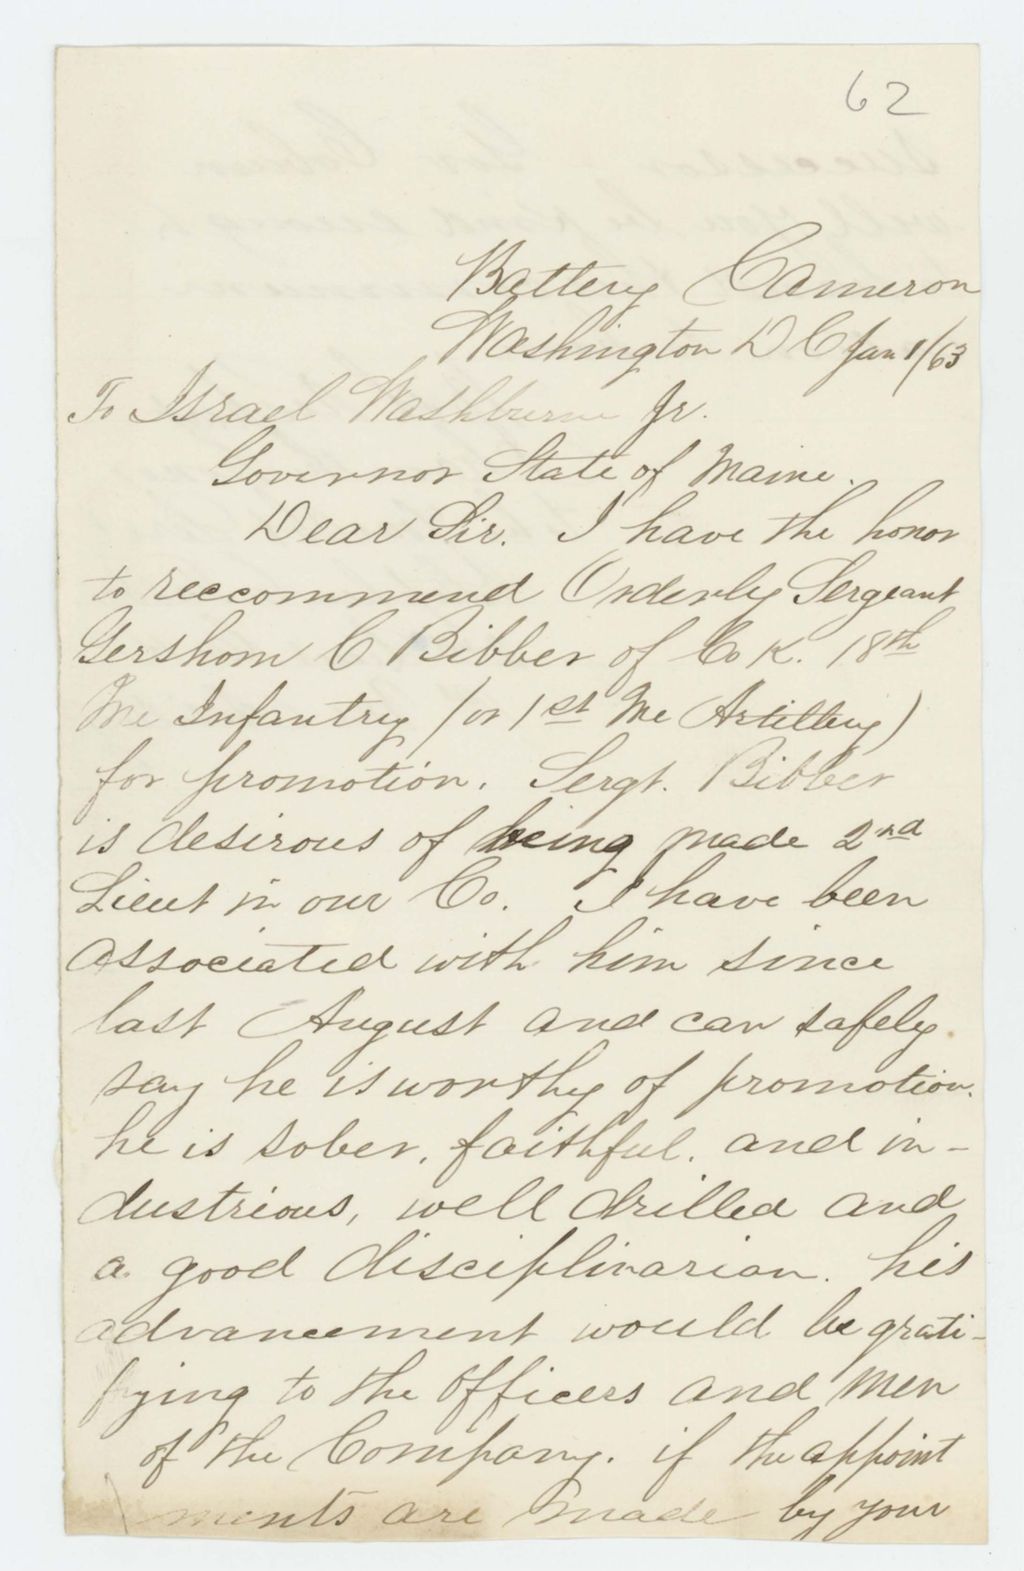 62
Battery Cameron
Washington D C Jan 1/63
To Israel Washburne Jr.
Governor State of Maine.
Dear Sir. I have the honor
to reccommend Orderly Sergeant
Gershom C Bibber of Co K. 18th
Me Infantry (or 1st Me Artillery)
for promotion. Sergt. Bibber
is desirous of being made 2nd
Lieut in our Co. I have been
associated with him since
last August and can safely
say he is worthy of promotion.
he is sober, faithful, and in-
dustrious, well drilled and
a good disciplinarian. his
advancement would be grati-
fying to the officers and men
of the Company. if the appoint
ments are made by your